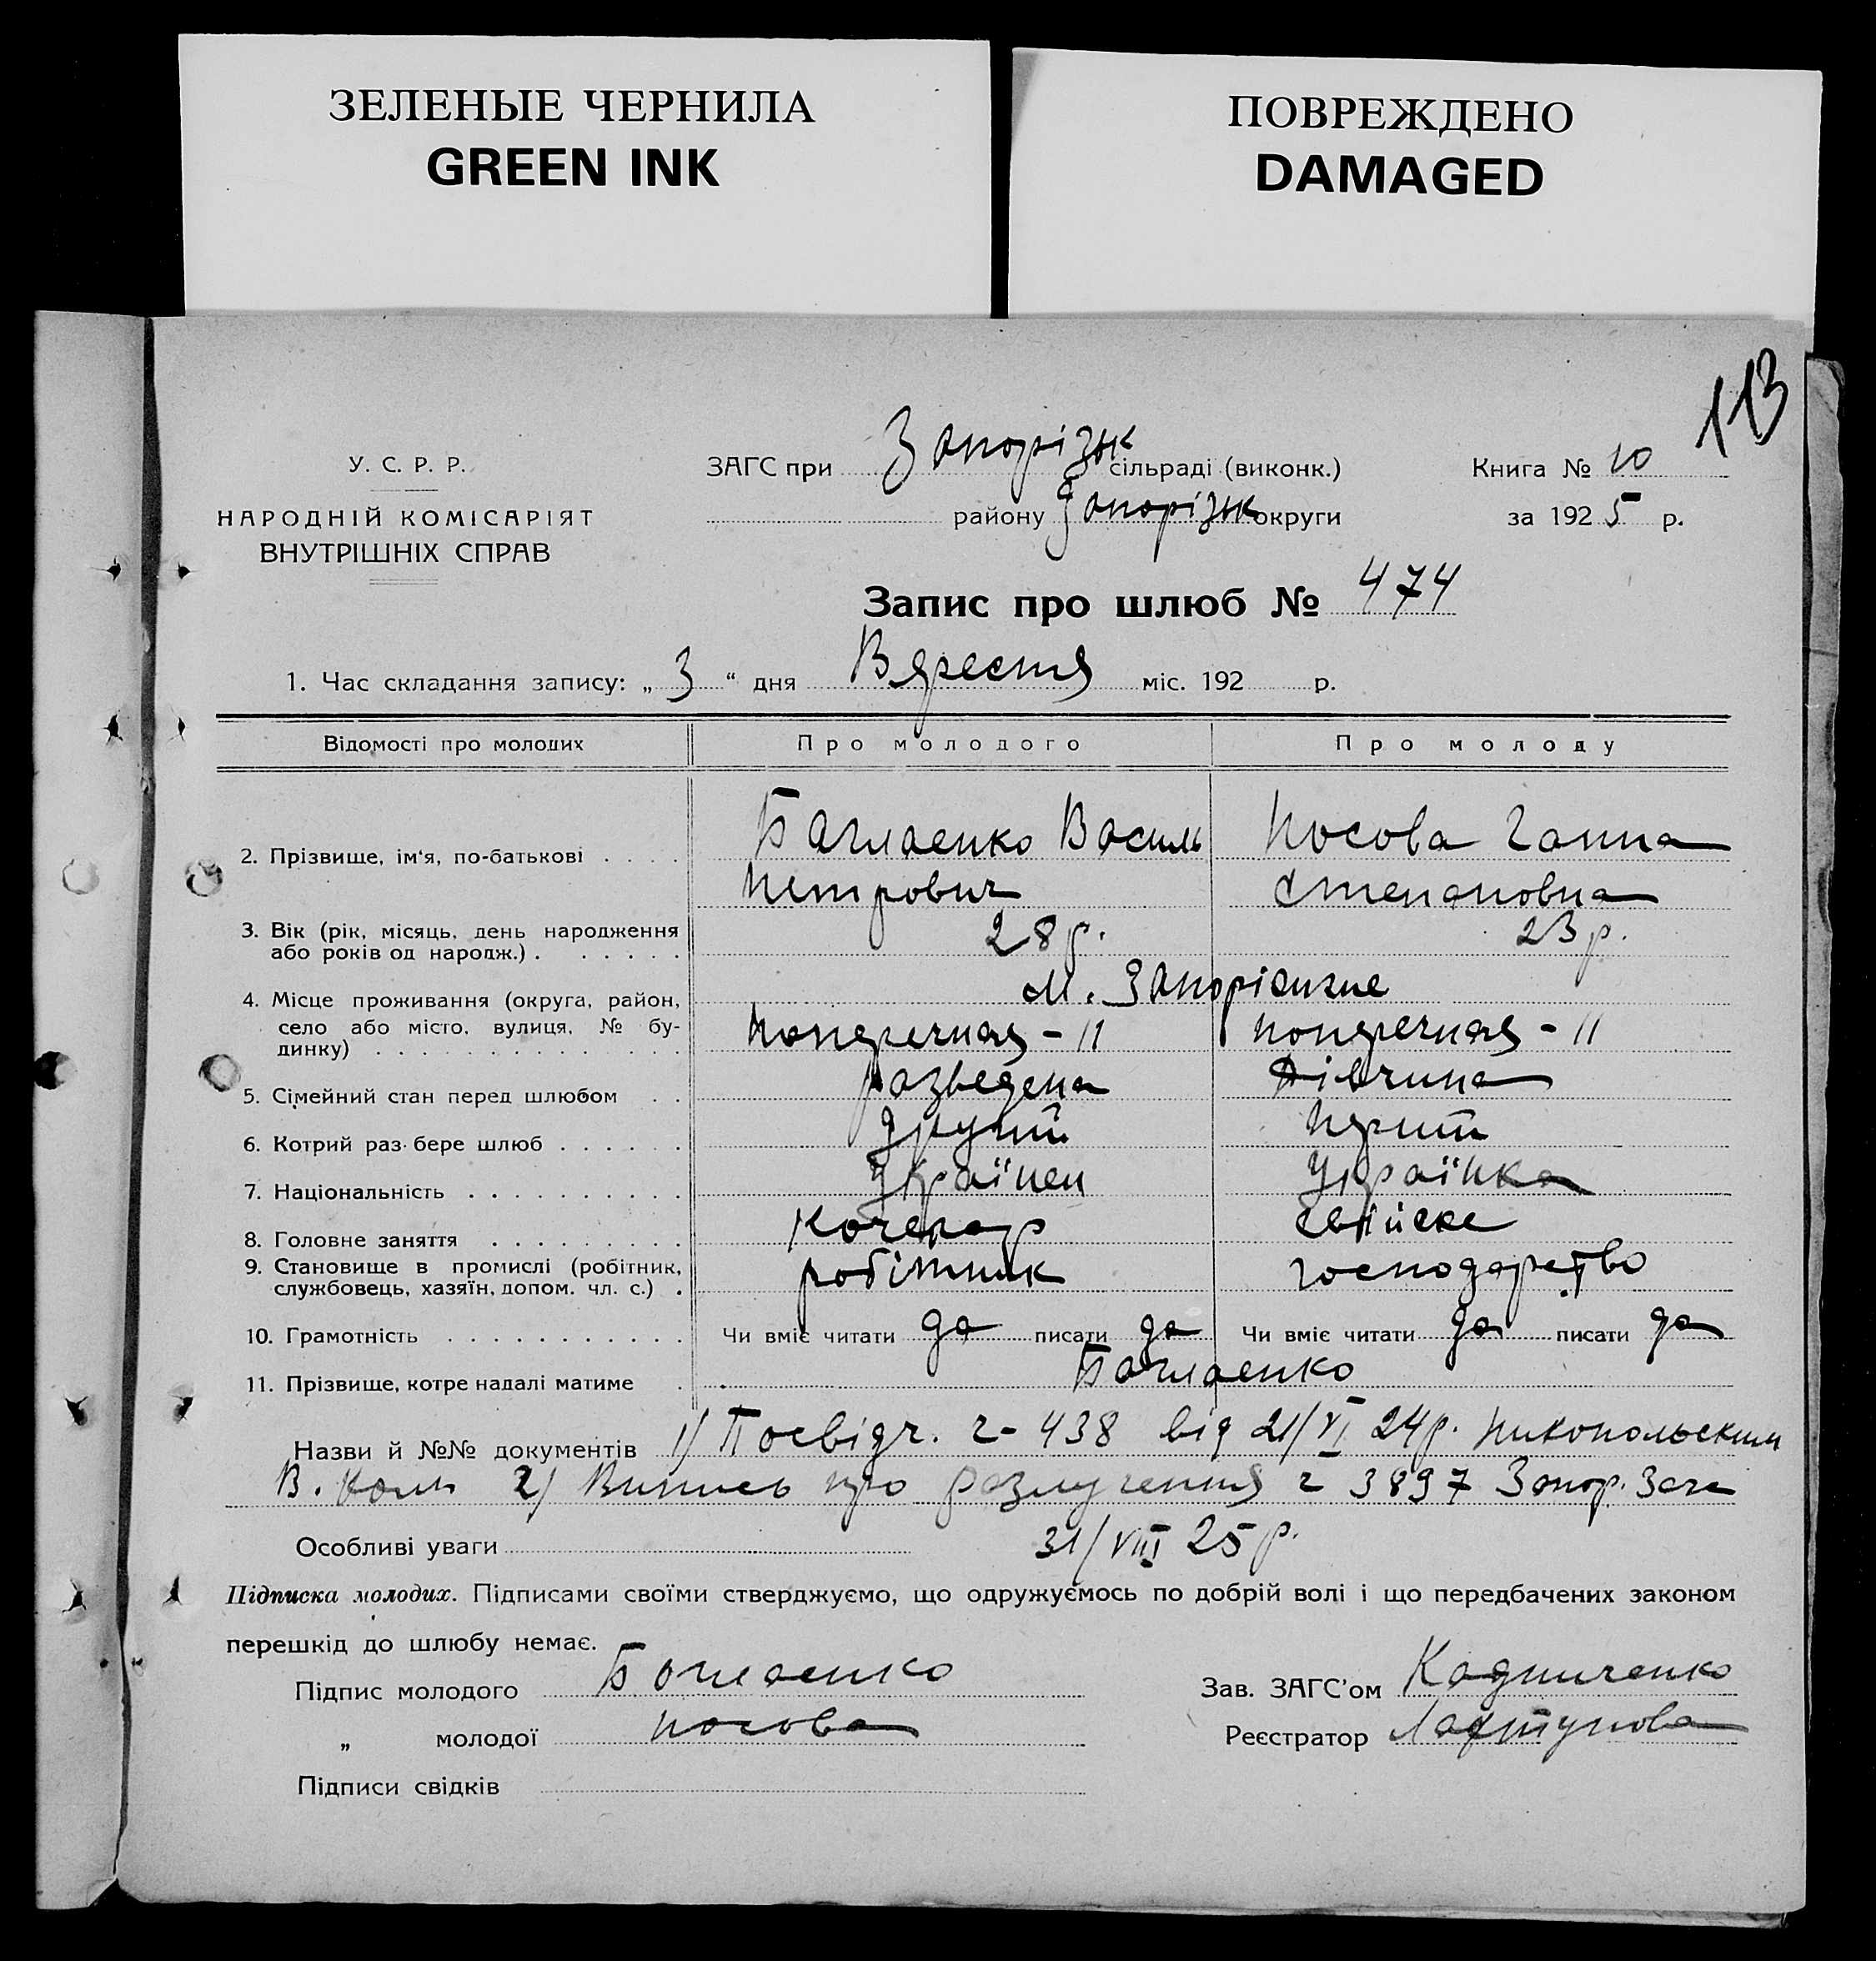 ЗЕЛЕНЫЕ ЧЕРНИЛА
GREEN INK
ПОВРЕЖДЕНО
DAMAGED
113
У. С. Р. Р.
НАРОДНІЙ КОМІСАРІЯТ
ВНУТРІШНІХ СПРАВ
ЗАГС при Запорізьк сільраді (виконк.)
району Запорізьк округи
Книга № 10
за 1925 р.
Запис про шлюб № 474
1. Час складання запису: „ 3 “ дня Вересня міс. 192 р.
Відомості про молодих Про молодого Про молоду
2. Прізвище, ім‘я, по-батькові . . . . Баглаенко Василь Носова Ганна
Петрович Степановна
3. Вік (рік, місяць, день народження 28 р. 23 р.
або років од народж.) . . . . . .
4. Місце проживання (округа, район, м. Запоріжжя
село або місто, вулиця, № бу- Поперечная - 11 Поперечная - 11
динку) . . . . . . . . . . . . . .
5. Сімейний стан перед шлюбом . . разведена Дівчина
6. Котрий раз бере шлюб . . . . . . другий перший
7. Національність . . . . . . . . . . Українец Українка
8. Головне заняття . . . . . . . . . Кочегар свійске
9. Становище в промислі (робітник, робітник господарство
службовець, хазяїн, допом. чл. с.) .
10. Грамотність . . . . . . . . . . . Чи вміє читати да писати да Чи вміє читати да писати да
11. Прізвище, котре надалі матиме . Баглаенко
Назви й №№ документів 1/ Посвідч. ч- 438 від 21/VI 24р. Никопольским
В. Ком 2/ Випись про разлучення ч 3897 Запор. Загс
Особливі уваги 31/VIII 25 р.
Підписка молодих. Підписами своїми стверджуємо, що одружуємось по добрій волі і що передбачених законом
перешкід до шлюбу немає.
Підпис молодого Баглаенко
Зав. ЗАГС’ом Кадниченко
„ молодої Носова
Реєстратор
Підписи свідків